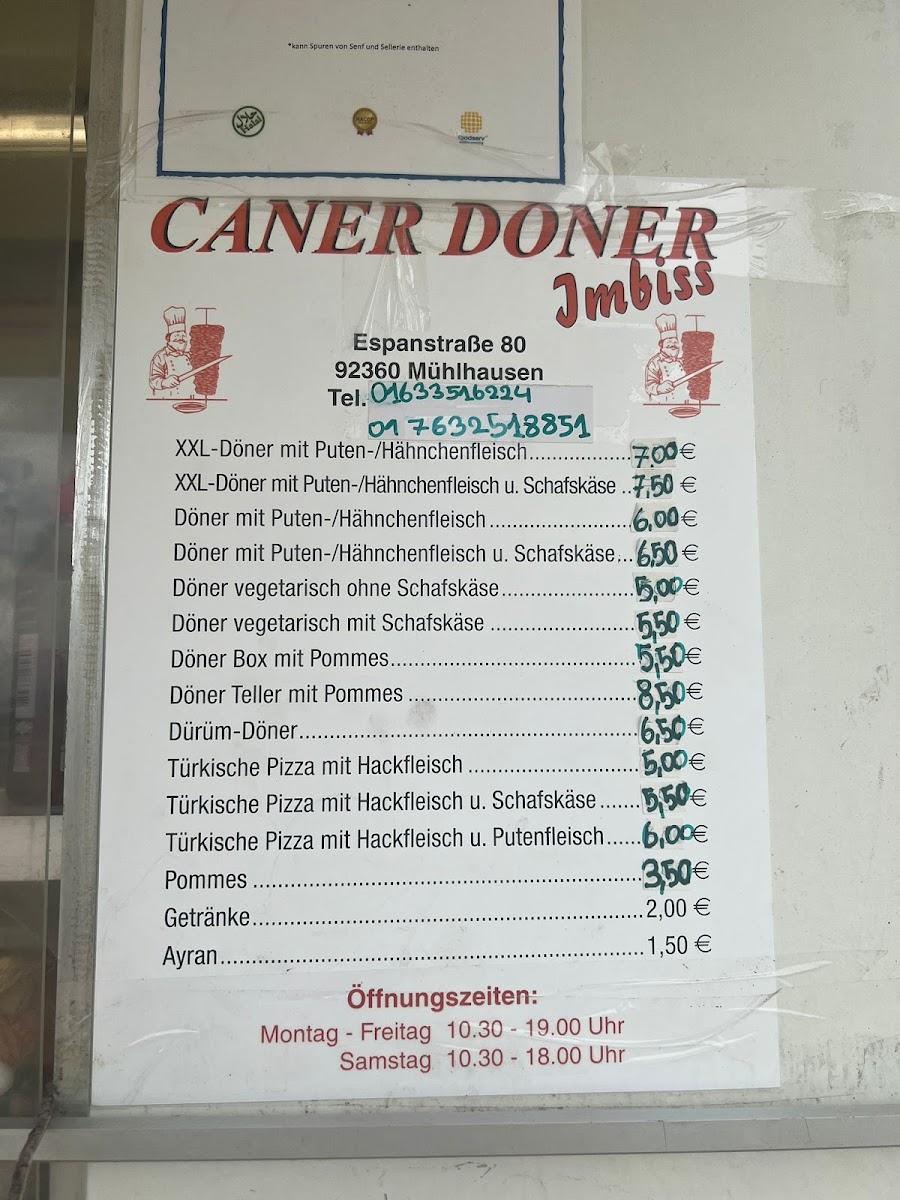 *kann Spuren von Senf und Sellerie enthalten
حلال
Halal
HACCP
CANER DONER
Imbiss
Espanstraße 80
92360 Mühlhausen
Tel. 01633516224
017632518851
XXL-Döner mit Puten-/Hähnchenfleisch.................7.00 €
XXL-Döner mit Puten-/Hähnchenfleisch u. Schafskäse ..7,50 €
Döner mit Puten-/Hähnchenfleisch.......................6,00 €
Döner mit Puten-/Hähnchenfleisch u. Schafskäse...6,50 €
Döner vegetarisch ohne Schafskäse.....................5,00 €
Döner vegetarisch mit Schafskäse .......................5,50 €
Döner Box mit Pommes.......................................5,50 €
Döner Teller mit Pommes ....................................8,50 €
Dürüm-Döner.....................................................6,50 €
Türkische Pizza mit Hackfleisch ..........................5,00 €
Türkische Pizza mit Hackfleisch u. Schafskäse.......5,50 €
Türkische Pizza mit Hackfleisch u. Putenfleisch......6,00 €
Pommes ............................................................3,50 €
Getränke............................................................2,00 €
Ayran.................................................................1,50 €
Öffnungszeiten:
Montag - Freitag 10.30 - 19.00 Uhr
Samstag 10.30 - 18.00 Uhr